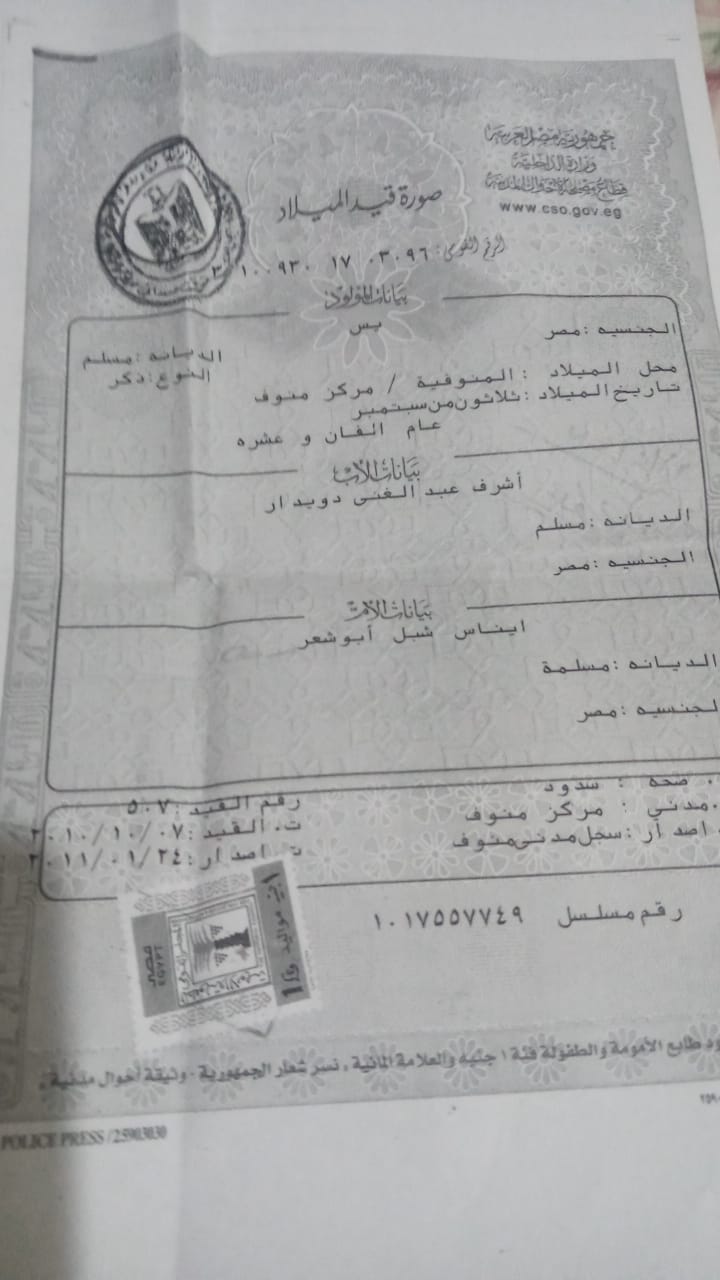 جمهورية مصر العربية
وزارة الداخلية
قطاع مصلحة الأحوال المدنية
www.cso.gov.eg
صورة قيد الميلاد
الرقم القومى: ٣١٠٠٩٣٠ ١٧ ٠٣٠٩٦
بيانات المولود
الجنسيه :مصر
الديانه :مسلم
النوع :ذكر
محل الميلاد : المنوفية / مركز منوف
تاريخ الميلاد :ثلاثون من سبتمبر
عام الفان و عشره
بيانات الأب
أشرف عبد الغنى دويدار
الديانه :مسلم
الجنسيه :مصر
بيانات الأم
ايناس شبل أبو شعر
الديانه :مسلمة
لجنسيه :مصر
صحه : سدود
رقم القيد :٥٠٧
مدني : مركز منوف
ت. القيد :٢٠١٠/١٠/٠٧
اصدار :سجل مدنى منوف
ت اصدار :٢٠١١/٠١/٢٤
رقم مسلسل ١٠١٧٥٥٧٧٤٩
مصر
EGYPT
طابع الأمومة والطفولة فئة ١ جنيه والعلامة المائية ، نسر شعار الجمهورية - وثيقة أحوال مدنية .
POLICE PRESS /25903030